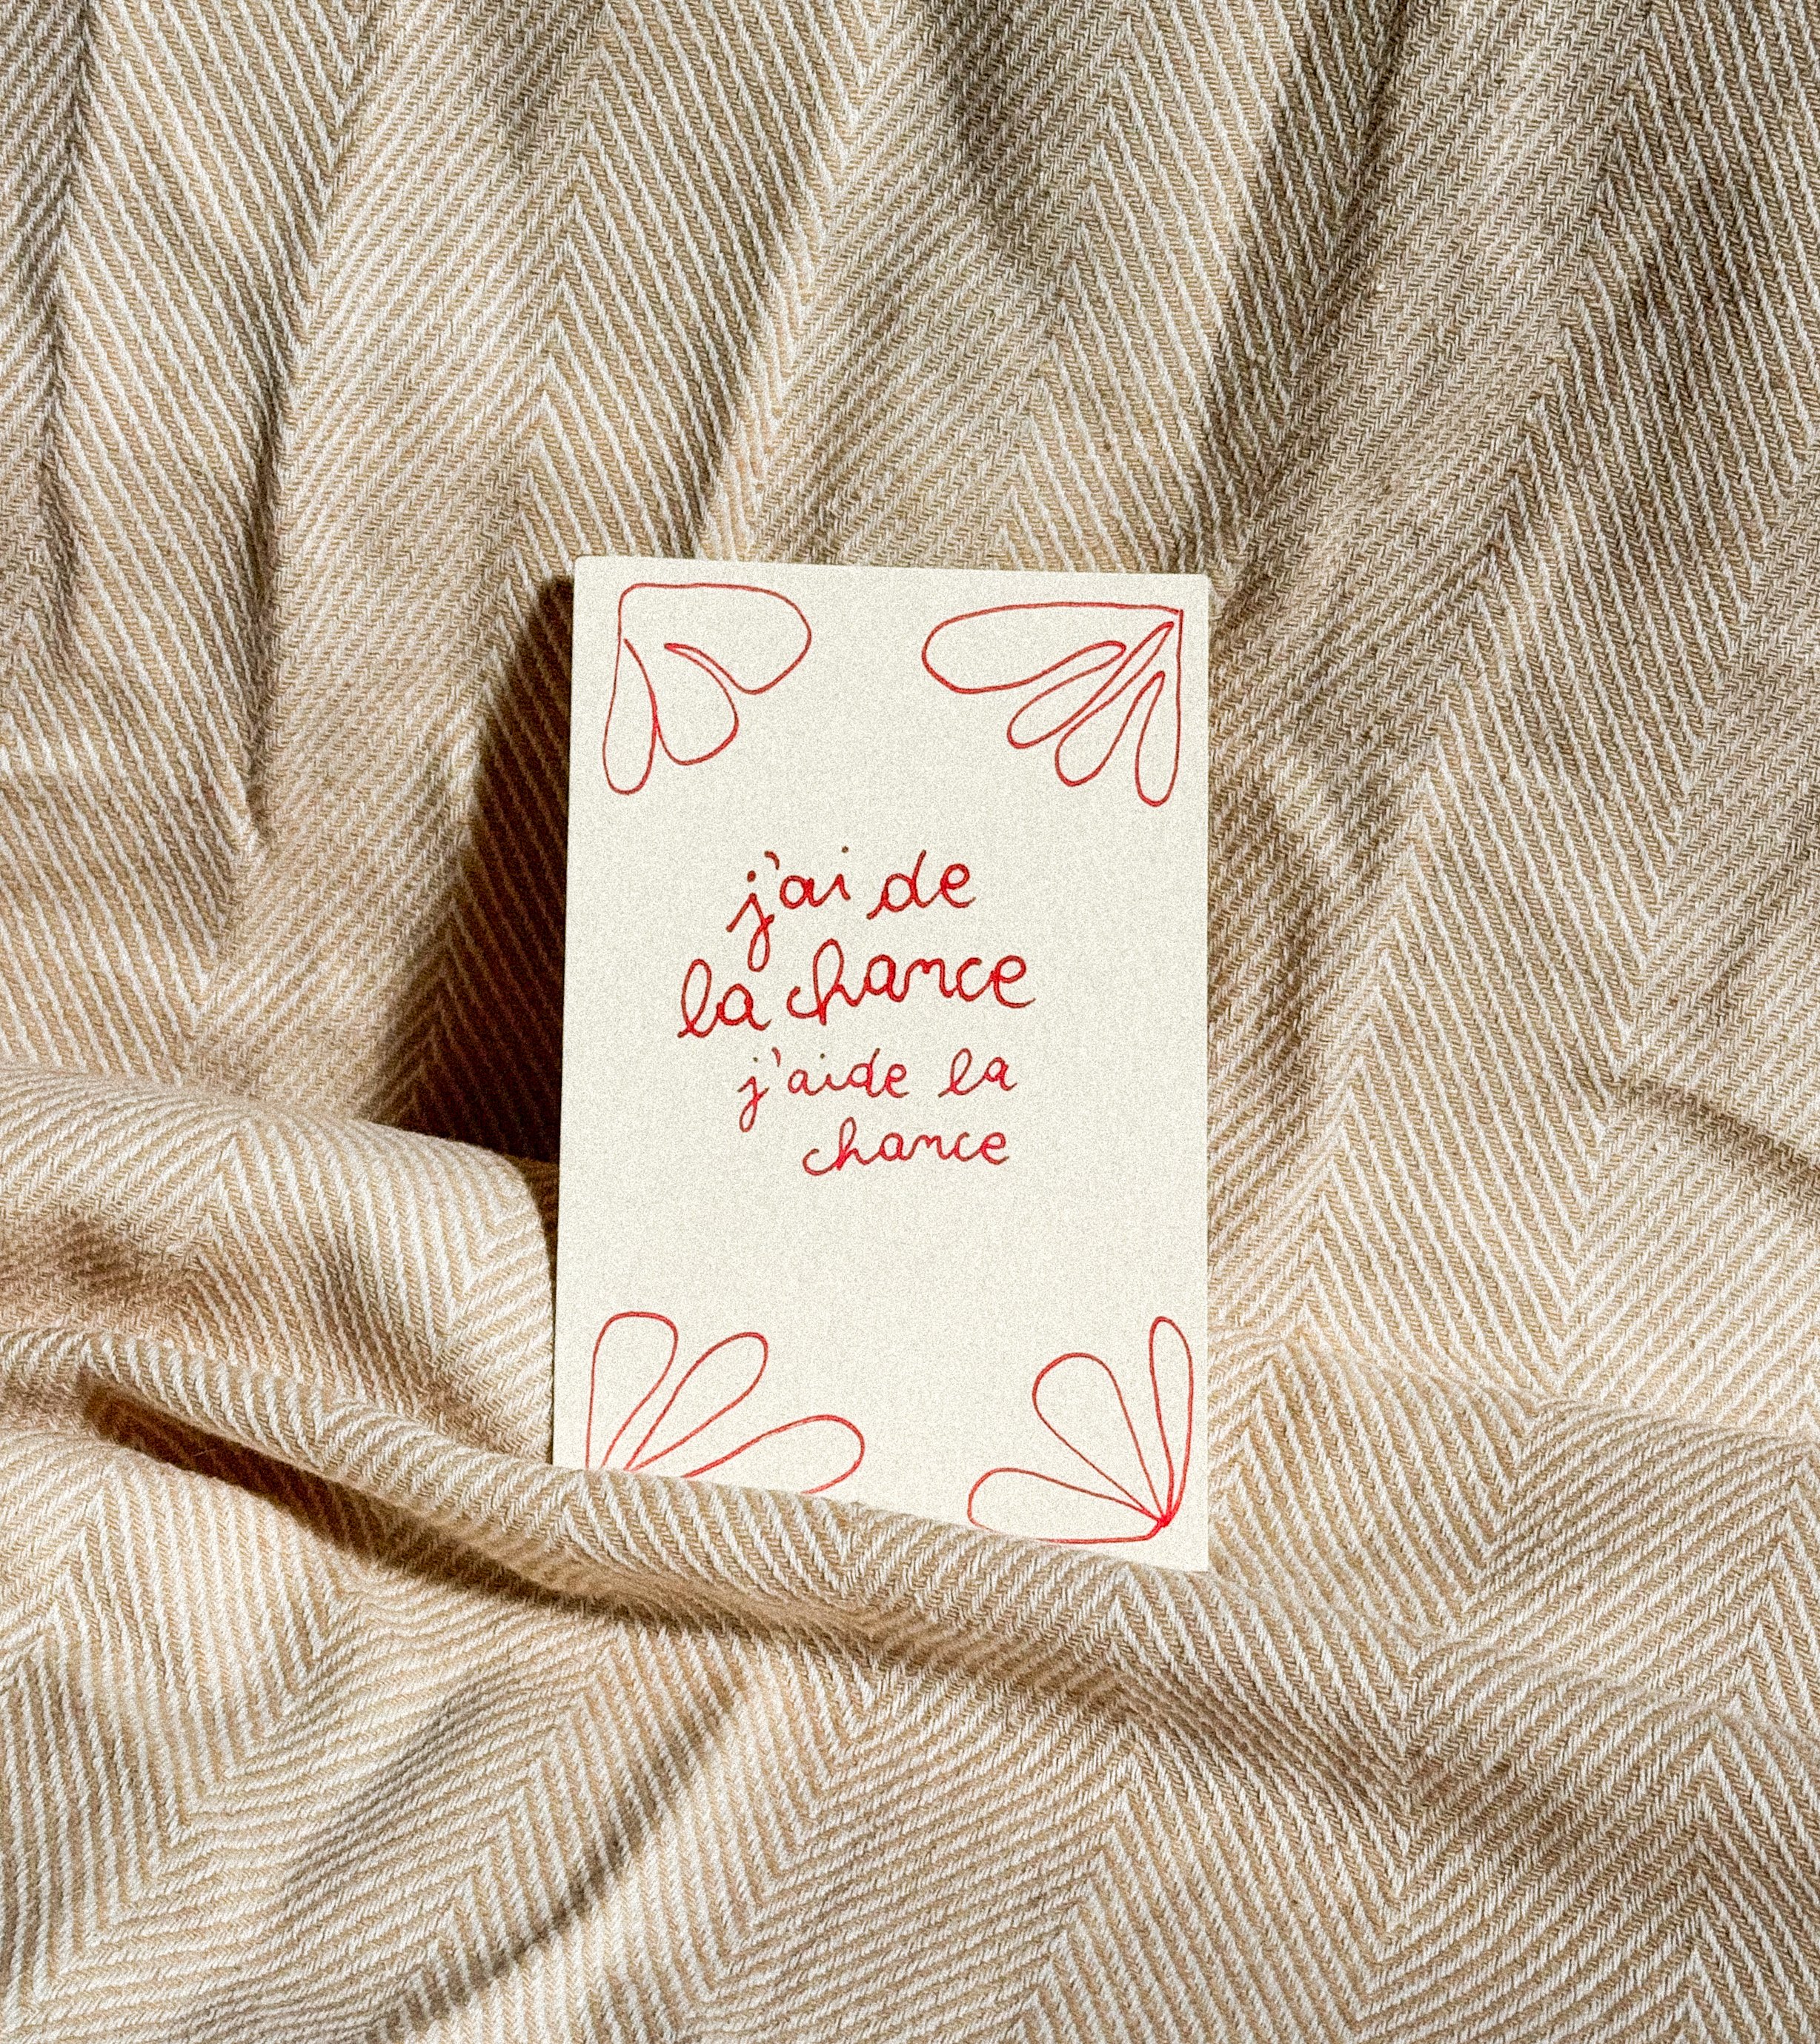 j'ai de
la chance
j'aide la
chance